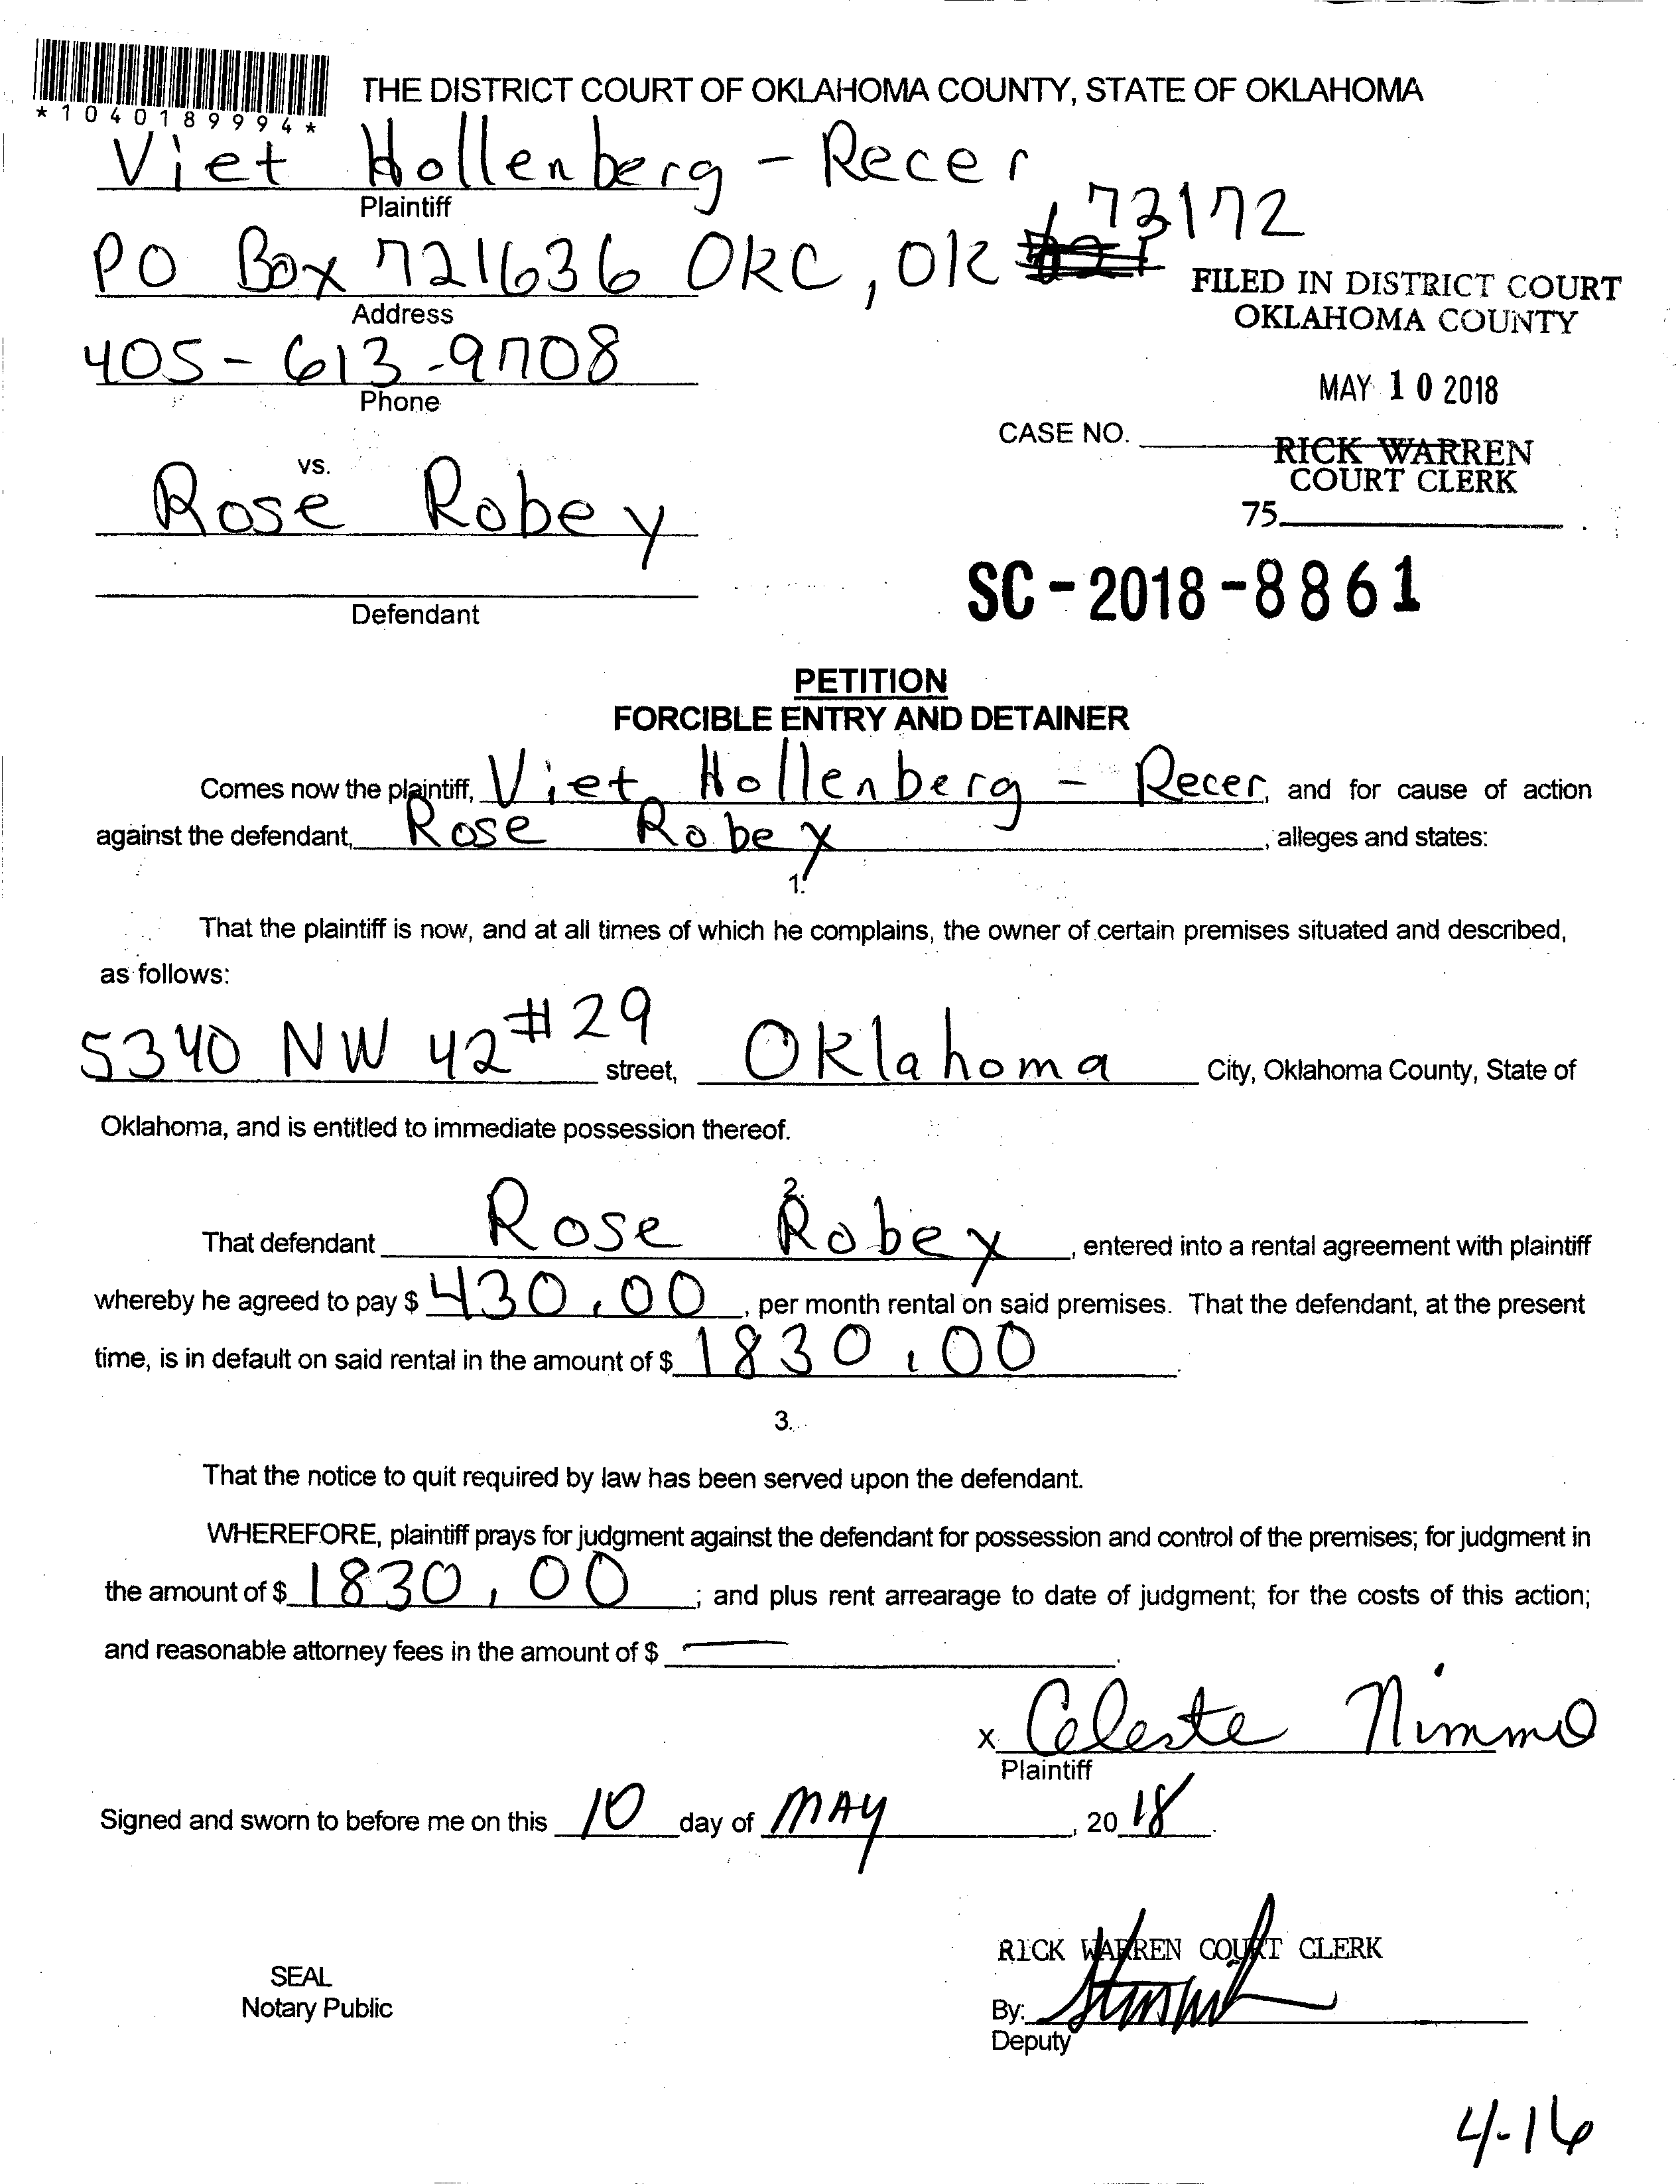 *1040189994*
THE DISTRICT COURT OF OKLAHOMA COUNTY, STATE OF OKLAHOMA
Viet Hollenberg - Recer
Plaintiff
73172
PO Box 721636 OKC, OK
Address
FILED IN DISTRICT COURT
OKLAHOMA COUNTY
405-613-9708
Phone
MAY 10 2018
CASE NO.
RICK WARREN
COURT CLERK
vs.
Rose Robey
75.
SC-2018-8861
Defendant
PETITION
FORCIBLE ENTRY AND DETAINER
Comes now the plaintiff, Viet Hollenberg - Recer, and for cause of action
against the defendant, Rose Robey, alleges and states:
1.
That the plaintiff is now, and at all times of which he complains, the owner of certain premises situated and described,
as follows:
5340 NW 42 #29 street, Oklahoma City, Oklahoma County, State of
Oklahoma, and is entitled to immediate possession thereof.
2.
That defendant Rose Robey, entered into a rental agreement with plaintiff
whereby he agreed to pay $ 430.00, per month rental on said premises. That the defendant, at the present
time, is in default on said rental in the amount of $ 1830.00.
3.
That the notice to quit required by law has been served upon the defendant.
WHEREFORE, plaintiff prays for judgment against the defendant for possession and control of the premises; for judgment in
the amount of $ 1830.00; and plus rent arrearage to date of judgment; for the costs of this action;
and reasonable attorney fees in the amount of $ —.
x Celeste Nimmo
Plaintiff
Signed and sworn to before me on this 10 day of MAY, 2018.
RICK WARREN COURT CLERK
SEAL
Notary Public
By:
Deputy
4-16